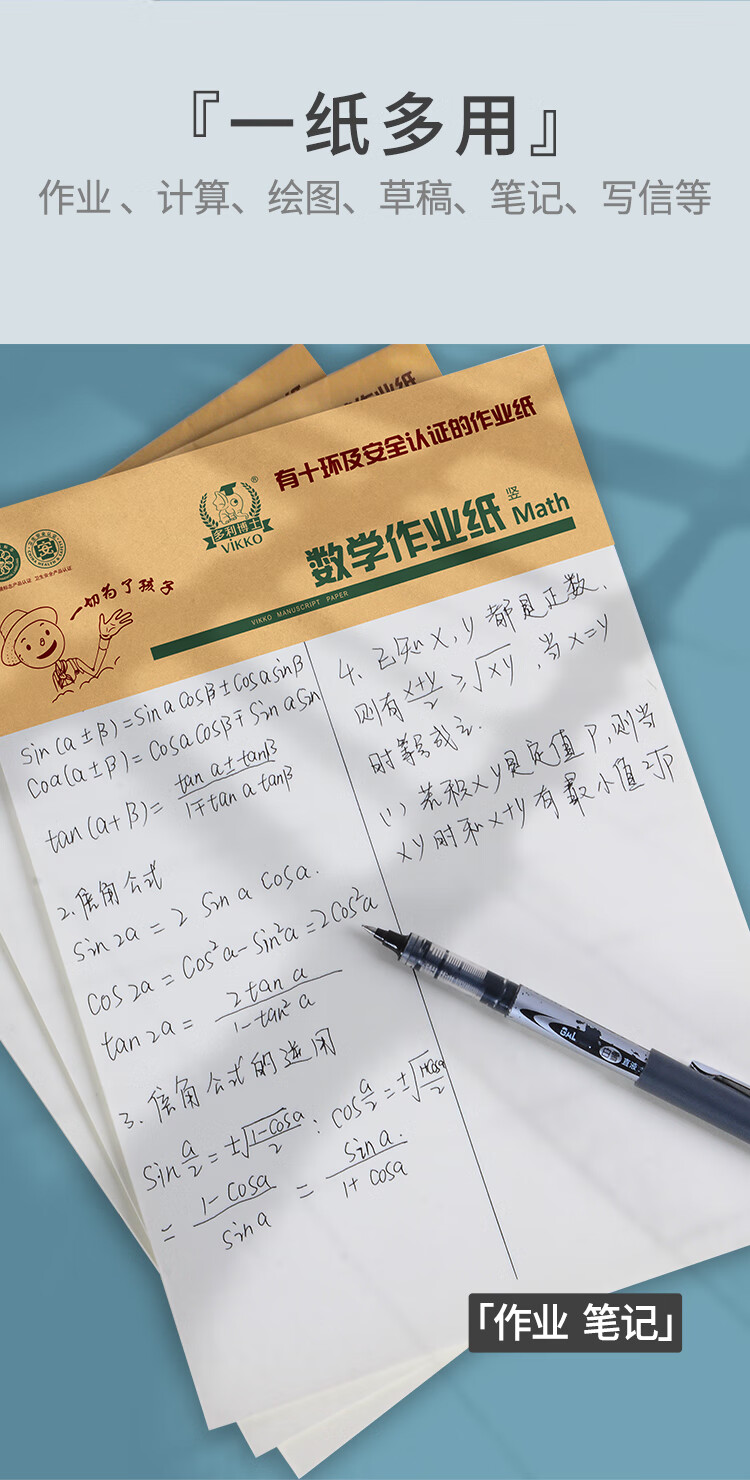 『一纸多用』
作业、计算、绘图、草稿、笔记、写信等
有十环及安全认证的作业纸
多利博士®
VIKKO
数学作业纸 竖 Math
一切为了孩子
VIKKO MANUSCRIPT PAPER
sin(a±β)=sina cosβ±cosa sinβ
Coa(a±β)=cosa cosβ∓sin a sin
tan(a+β)= tan a±tanβ / 1∓tan a tanβ
2.倍角公式
sin2a=2 sina cosa.
cos2a=cos²a-sin²a=2cos²a
tan2a= 2tan a / 1-tan²a
3.倍角公式的逆用
sin a/2=±√1-cosa/2 : cos a/2=±√1+cosa/2
= 1-cosa / sina = sina. / 1+cosa
4.已知x,y都是正数,
则有 x+y/2 ≥√xy ,当x=y
时等号成立.
(1)若积xy是定值P,则当
xy时和x+y有最小值2√P
「作业 笔记」